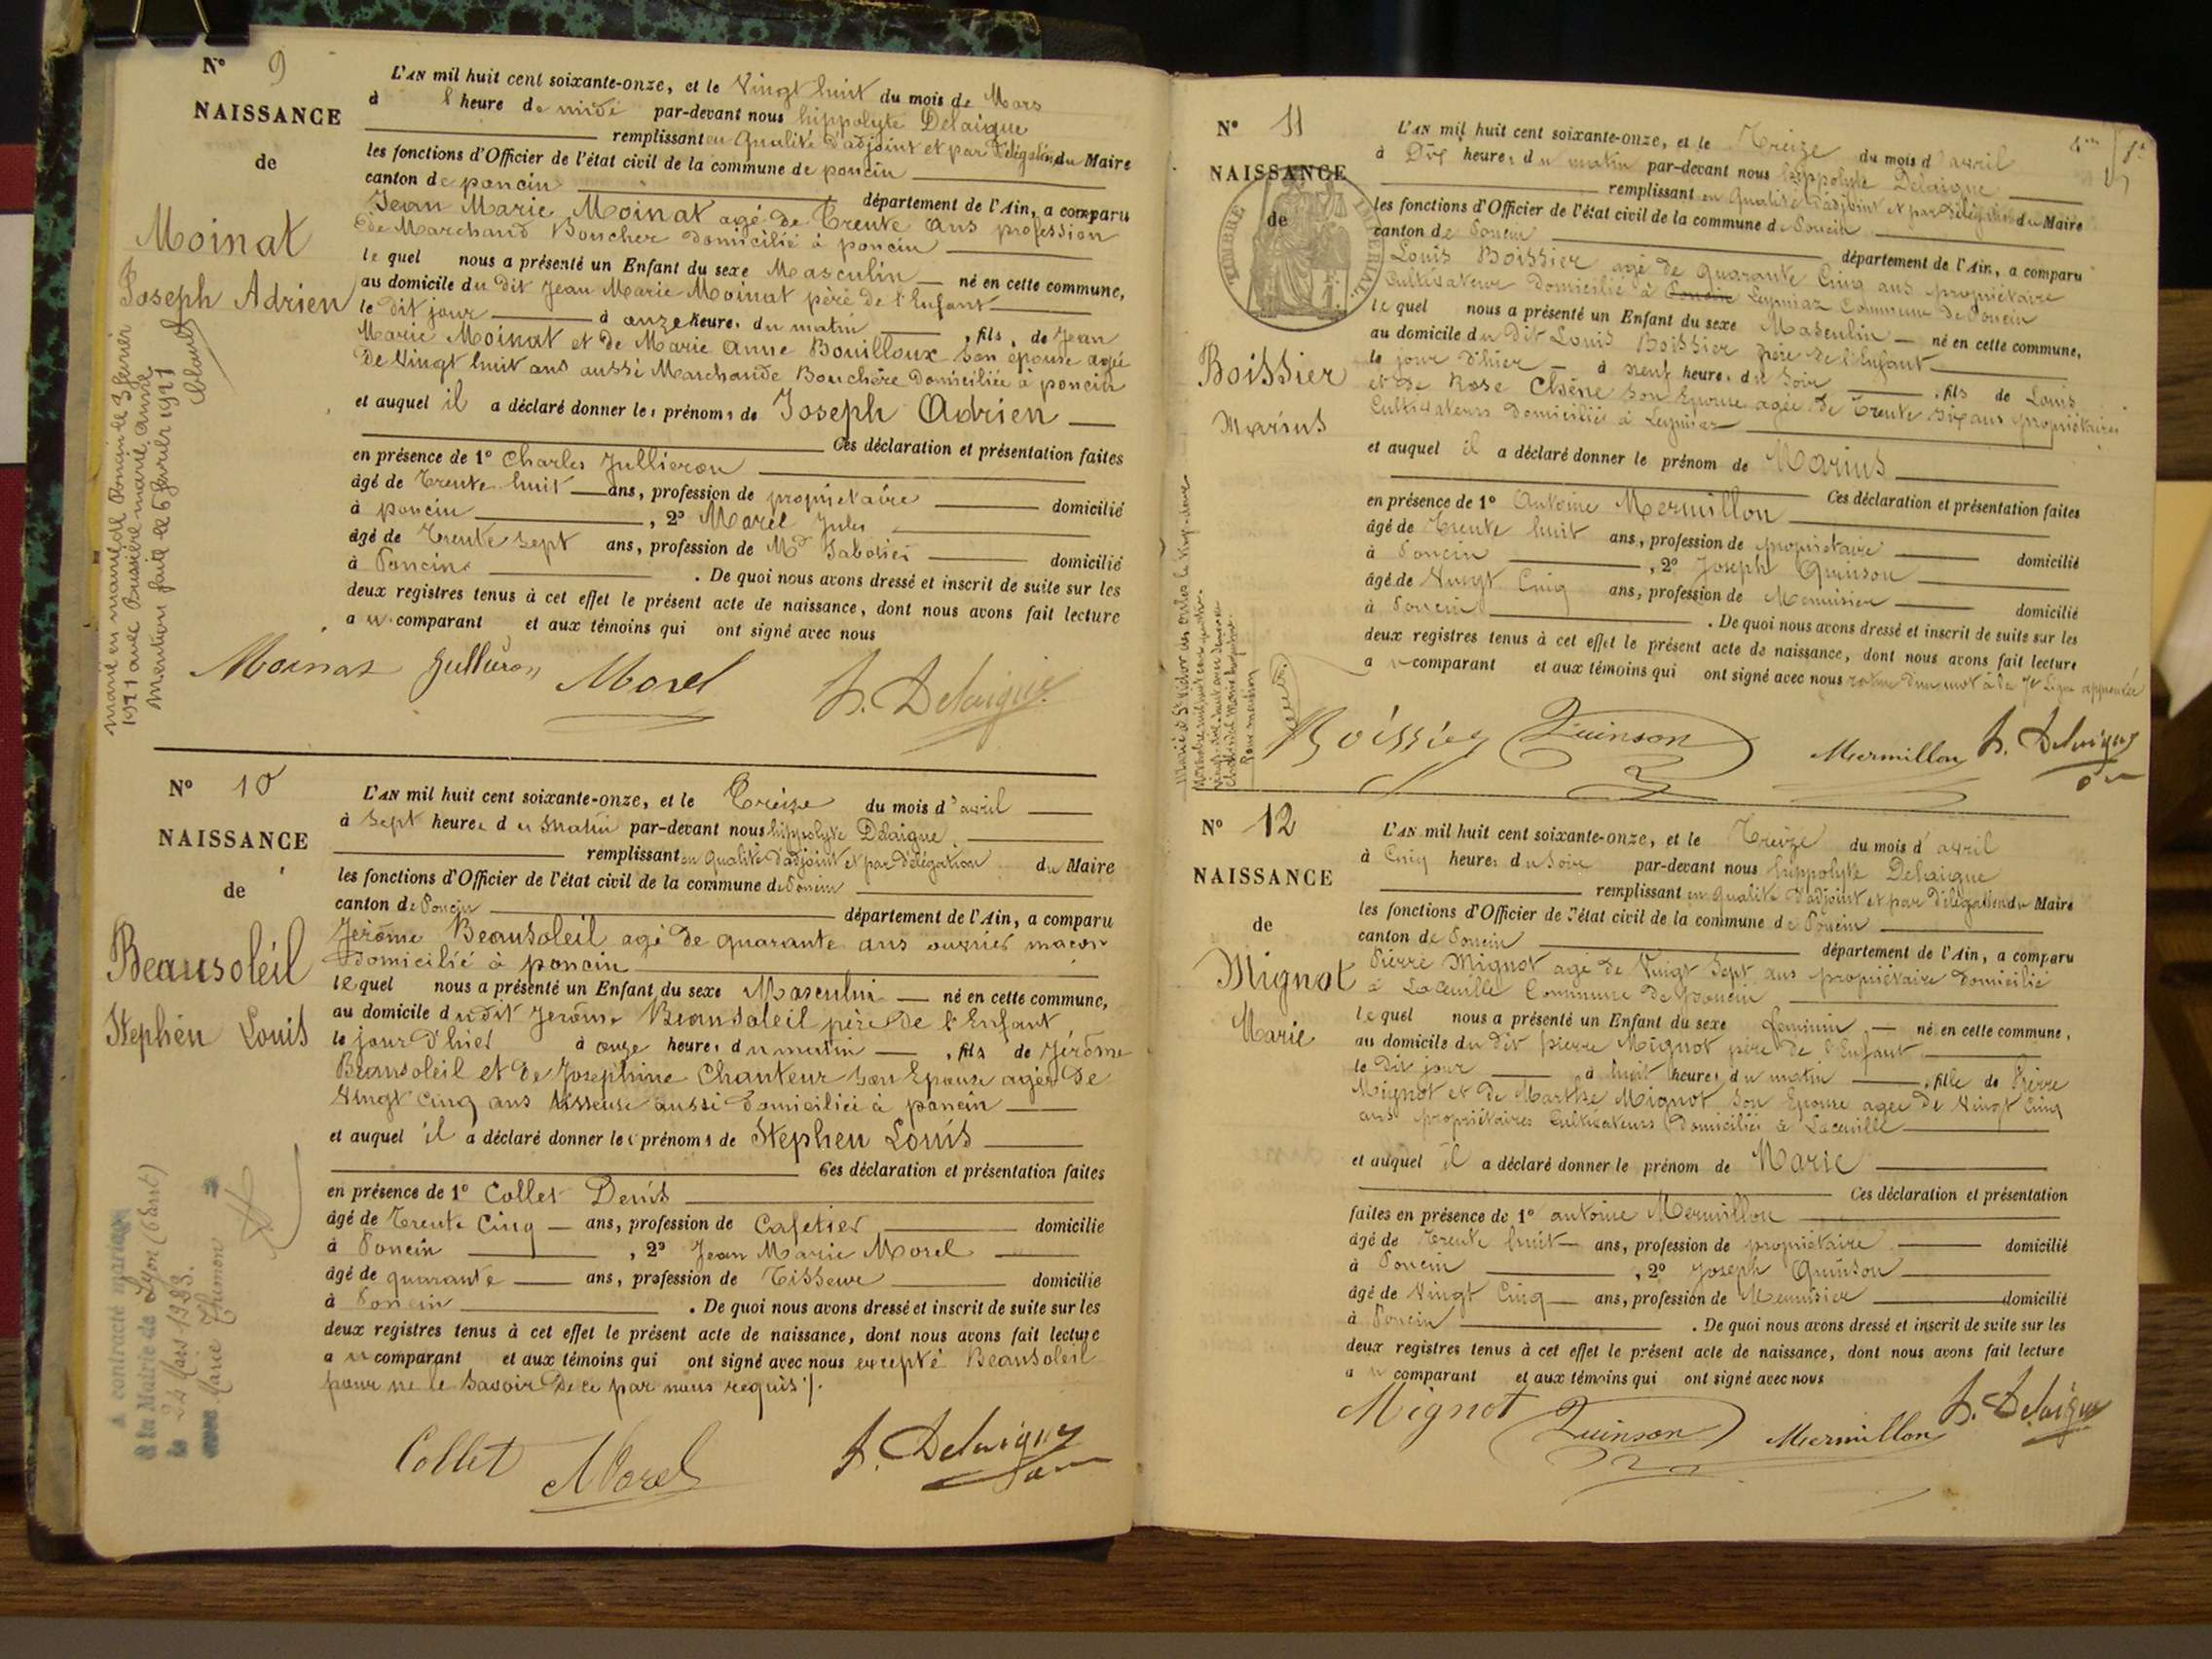 N° 9
NAISSANCE
de
Moinat
Joseph Adrien
L'AN mil huit cent soixante-onze, et le Vingt huit du mois de Mars
à l heure de midi par-devant nous hippolyte Delaigue
remplissant en Qualité d'adjoint et par Délégation du Maire
les fonctions d'Officier de l'état civil de la commune de poncin
canton de poncin département de l'Ain, a comparu
Jean Marie Moinat agé de Trente ans profession
de Marchand Boucher domicilié à poncin
le quel nous a présenté un Enfant du sexe Masculin né en cette commune,
au domicile du dit Jean Marie Moinat père de l'Enfant
le dit jour à onze heures du matin, fils, de Jean
Marie Moinat et de Marie Anne Bouilloux son épouse agée
de Vingt huit ans aussi Marchande Bouchère domiciliée à poncin
et auquel il a déclaré donner les prénoms de Joseph Adrien
Ces déclaration et présentation faites
en présence de 1° Charles Jullieron
âgé de Trente huit ans, profession de propriétaire domicilié
à poncin, 2° Morel Jules
âgé de Trente Sept ans, profession de Md Sabotier domicilié
à Poncin. De quoi nous avons dressé et inscrit de suite sur les
deux registres tenus à cet effet le présent acte de naissance, dont nous avons fait lecture
au comparant et aux témoins qui ont signé avec nous
Moinat Jullieron Morel h. Delaigue
Marié en mairie de Poncin le 3 février
1921 avec
Mention faite le 6 février 1921
N° 10
NAISSANCE
de
Beausoleil
Stephen Louis
L'AN mil huit cent soixante-onze, et le Treize du mois d'avril
à Sept heures du Matin par-devant nous hippolyte Delaigue
remplissant en Qualité d'adjoint et par Délégation du Maire
les fonctions d'Officier de l'état civil de la commune de Poncin
canton de Poncin département de l'Ain, a comparu
Jérôme Beausoleil agé de quarante ans ouvrier maçon
domicilié à poncin
le quel nous a présenté un Enfant du sexe Masculin né en cette commune,
au domicile dudit Jerôme Beausoleil père de l'Enfant
le jour d'hier à onze heures du matin, fils de Jérôme
Beausoleil et de Josephine Chanteur son Epouse agée de
Vingt cinq ans tisseuse aussi domiciliée à poncin
et auquel il a déclaré donner les prénoms de Stephen Louis
Ces déclaration et présentation faites
en présence de 1° Collet Denis
âgé de Trente Cinq ans, profession de Cafetier domicilié
à Poncin, 2° Jean Marie Morel
âgé de quarante ans, profession de Tisseur domicilié
à Poncin. De quoi nous avons dressé et inscrit de suite sur les
deux registres tenus à cet effet le présent acte de naissance, dont nous avons fait lecture
au comparant et aux témoins qui ont signé avec nous excepté Beausoleil
pour ne le savoir de ce par nous requis /.
Collet Morel h. Delaigue
A contracté mariage
à la Mairie de Lyon
le 24 Mars
avec Marie Thimon
N° 11
NAISSANCE
de
TIMBRE IMPERIAL
Boissier
Marius
L'AN mil huit cent soixante-onze, et le Treize du mois d'avril
à Dix heures du matin par-devant nous hippolyte Delaigue
remplissant en Qualité d'adjoint et par délégation du Maire
les fonctions d'Officier de l'état civil de la commune de Poncin
canton de Poncin département de l'Ain, a comparu
Louis Boissier agé de quarante Cinq ans propriétaire
Cultivateur domicilié à Poncin Leymiaz Commune de Poncin
le quel nous a présenté un Enfant du sexe Masculin né en cette commune,
au domicile du dit Louis Boissier père de l'Enfant
le jour d'hier à neuf heures du Soir, fils de Louis
et de Rose son Epouse agée de Trente Six ans propriétaires
Cultivateurs domiciliés à Leymiaz
et auquel il a déclaré donner le prénom de Marius
Ces déclaration et présentation faites
en présence de 1° Antoine Mermillon
âgé de Trente huit ans, profession de propriétaire domicilié
à Poncin, 2° Joseph Quinson
âgé de Vingt Cinq ans, profession de Menuisier domicilié
à Poncin. De quoi nous avons dressé et inscrit de suite sur les
deux registres tenus à cet effet le présent acte de naissance, dont nous avons fait lecture
au comparant et aux témoins qui ont signé avec nous rature d'un mot à la 7e Ligne approuvée
Boissier Quinson Mermillon h. Delaigue
Pour mention
N° 12
NAISSANCE
de
Mignot
Marie
L'AN mil huit cent soixante-onze, et le Treize du mois d'avril
à Cinq heures du Soir par-devant nous hippolyte Delaigue
remplissant en Qualité d'adjoint et par Délégation du Maire
les fonctions d'Officier de l'état civil de la commune de Poncin
canton de Poncin département de l'Ain, a comparu
Pierre Mignot agé de Vingt Sept ans propriétaire domicilié
à Lacueille Commune de poncin
le quel nous a présenté un Enfant du sexe Feminin né en cette commune,
au domicile du dit pierre Mignot père de l'Enfant
le dit jour à huit heures du matin, fille de Pierre
Mignot et de Marthe Mignot son Epouse agée de Vingt Cinq
ans propriétaires Cultivateurs domiciliés à Lacueille
et auquel il a déclaré donner le prénom de Marie
Ces déclaration et présentation
faites en présence de 1° antoine Mermillon
âgé de Trente huit ans, profession de propriétaire domicilié
à Poncin, 2° Joseph Quinson
âgé de Vingt Cinq ans, profession de Menuisier domicilié
à Poncin. De quoi nous avons dressé et inscrit de suite sur les
deux registres tenus à cet effet le présent acte de naissance, dont nous avons fait lecture
au comparant et aux témoins qui ont signé avec nous
Mignot Quinson Mermillon h. Delaigue